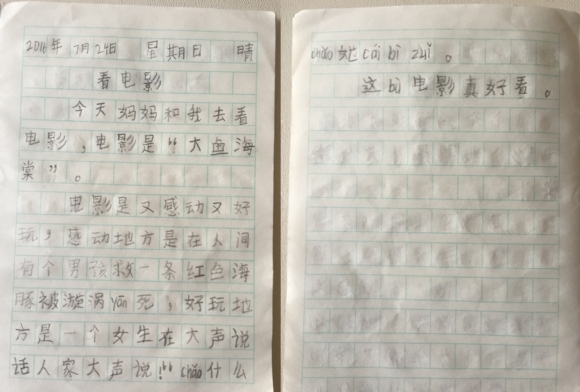 2016年 7月24日 星期日 晴
看电影
今天妈妈和我去看
电影，电影是“大鱼海
棠”。
电影是又感动又好
玩，感动地方是在人间
有个男孩救一条红色海
豚被漩涡yān死，好玩地
方是一个女生在大声说
话人家大声说！“chǎo什么
chǎo女也cái bì zuǐ。
这bù电影真好看。